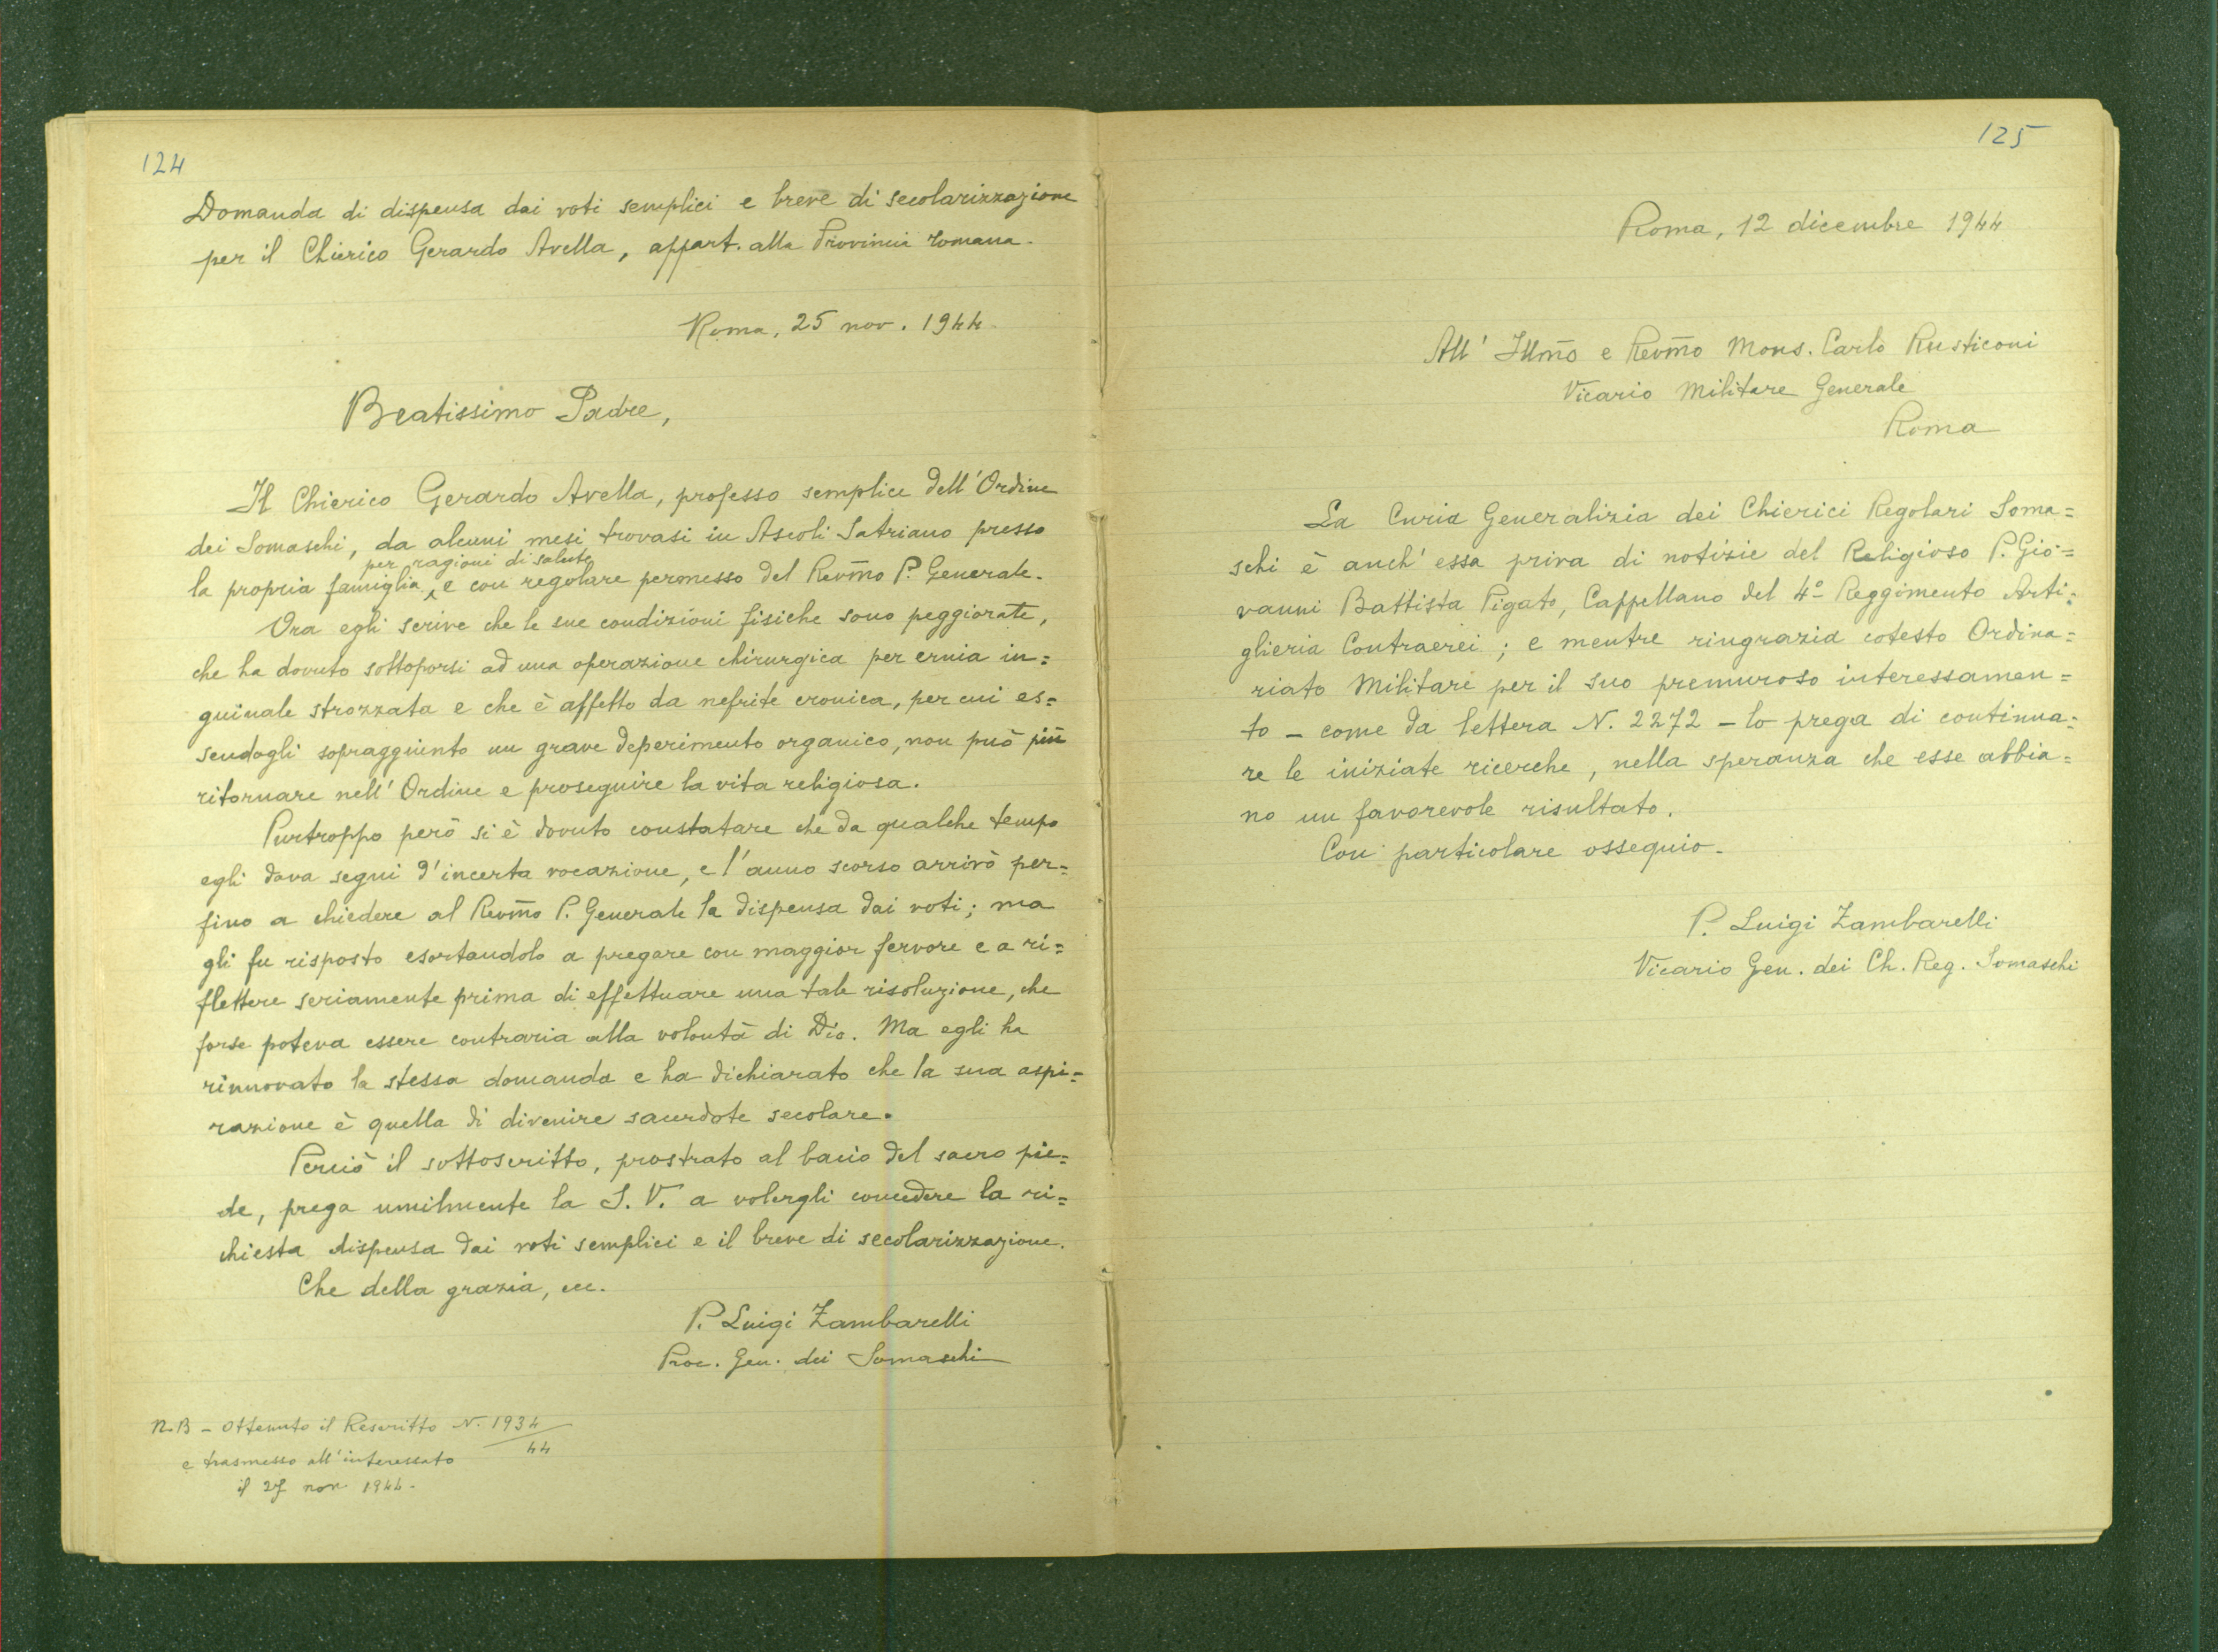 124
Domanda di dispensa dai voti semplici e breve di secolarizzazione
per il Chierico Gerardo Avella, appart. alla Provincia romana.
Roma, 25 nov. 1944.
Beatissimo Padre,
Il Chierico Gerardo Avella, professo semplice dell'Ordine
dei Somaschi, da alcuni mesi trovasi in Ascoli Satriano presso
per ragioni di salute
la propria famiglia, e con regolare permesso del Revm̃o P. Generale.
Ora egli scrive che le sue condizioni fisiche sono peggiorate,
che ha dovuto sottoporsi ad una operazione chirurgica per ernia in=
guinale strozzata e che è affetto da nefrite cronica, per cui es=
sendogli sopraggiunto un grave deperimento organico, non può più
ritornare nell'Ordine e proseguire la vita religiosa.
Purtroppo però si è dovuto constatare che da qualche tempo
egli dava segni d'incerta vocazione, e l'anno scorso arrivò per=
fino a chiedere al Revm̃o P. Generale la dispensa dai voti; ma
gli fu risposto esortandolo a pregare con maggior fervore e a ri=
flettere seriamente prima di effettuare una tale risoluzione, che
forse poteva essere contraria alla volontà di Dio. Ma egli ha
rinnovato la stessa domanda e ha dichiarato che la sua aspi=
razione è quella di divenire sacerdote secolare.
Perciò il sottoscritto, prostrato al bacio del sacro pie=
de, prega umilmente la S. V. a volergli concedere la ri=
chiesta dispensa dai voti semplici e il breve di secolarizzazione.
Che della grazia, ecc.
P. Luigi Zambarelli
Proc. Gen. dei Somaschi
N.B - Ottenuto il Rescritto N. 1934/44
e trasmesso all'interessato
il 27 nov 1944.
125
Roma, 12 dicembre 1944
All' Illm̃o e Revm̃o Mons. Carlo Rusticoni
Vicario Militare Generale
Roma
La Curia Generalizia dei Chierici Regolari Soma=
schi è anch'essa priva di notizie del Religioso P. Gio=
vanni Battista Pigato, Cappellano del 4º Reggimento Arti=
glieria Contraerei; e mentre ringrazia cotesto Ordina=
riato Militare per il suo premuroso interessamen=
to - come da lettera N. 2272 - lo prega di continua=
re le iniziate ricerche, nella speranza che esse abbia=
no un favorevole risultato.
Con particolare ossequio.
P. Luigi Zambarelli
Vicario Gen. dei Ch. Reg. Somaschi